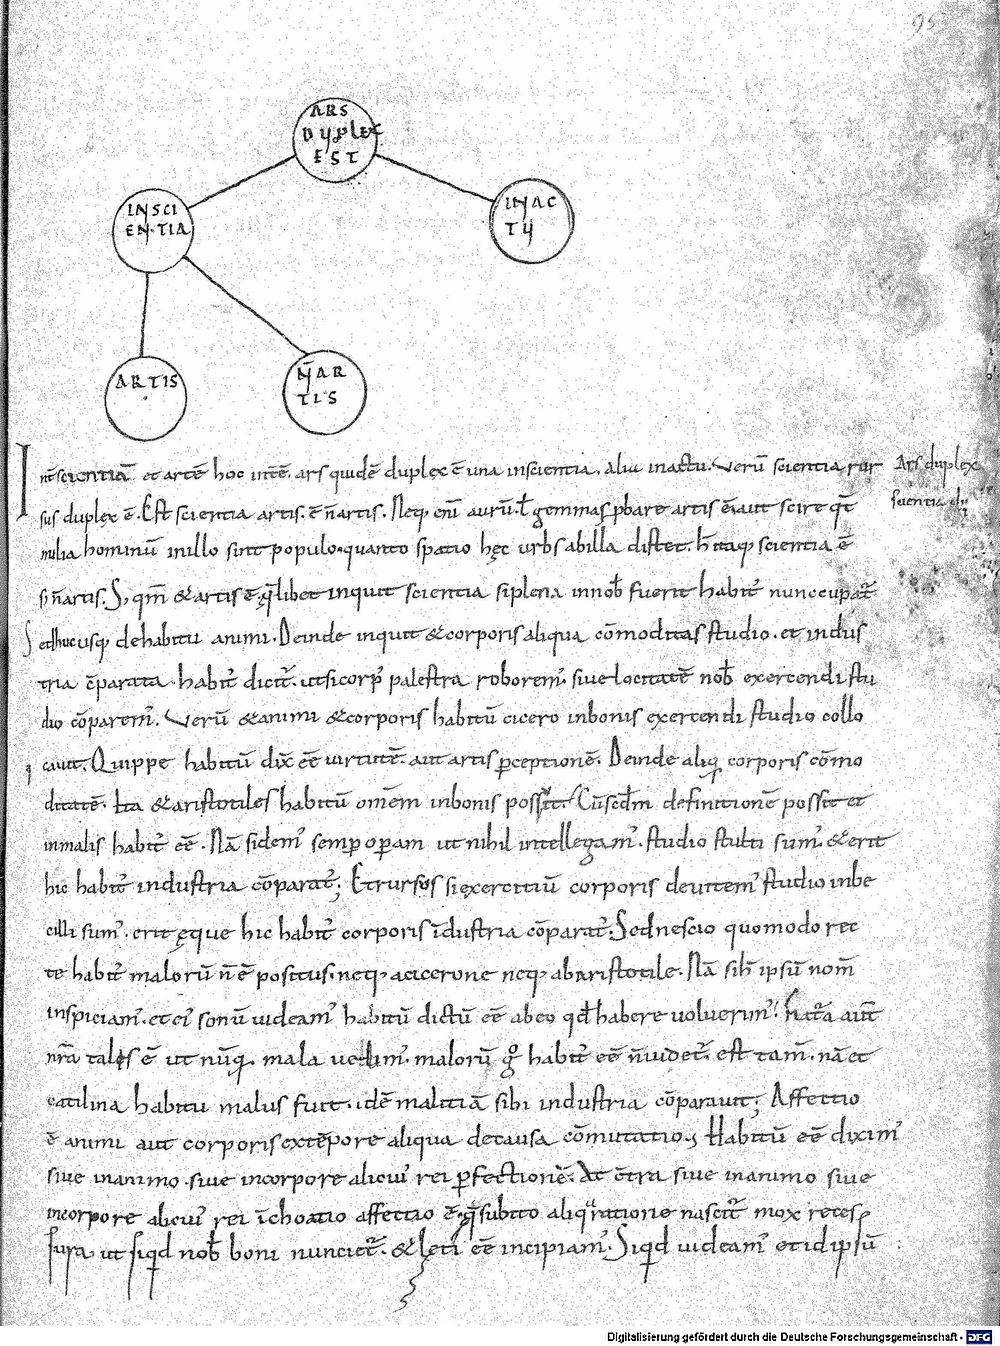 95
ARS
DUPLEX
EST
INSCI
ENTIA
INAC
TU
ARTIS
N̄AR
TIS
Int̄ scientiā et artē hoc int̄ē. ars quidē duplex ē una inscientia. alia inactu. Verū scientia rur
Ars duplex
scientia
sus duplex ē. Est scientia artis. ē n̄artis. Neq; eni aurū. t̄ gemmas p̱bare artis ē. aut scire qt̄
milia hominū inillo sint populo. quanto spatio hęc urbs abilla distet. h̄ itaq; scientia ē
s; n̄artis. S; qm̄ & artis ē. q̄libet inquit scientia siplena innob̄ fuerit habit᷑ nuncupat᷑
Sed hucusq; dehabitu animi. Deinde inquit & corporis aliqua cōmoditas studio. et indus
tria c̄parata habit᷑ dicit᷑. utsicorp᷑ palestra roborem᷑. siue locitatē nob̄ exercendi stu
dio cōparem᷑. Verū & animi & corporis habitū cicero inbonis exercendi studio collo
cauit. Quippe habitū dix̄ eē uirtutē. aut artis p̱ceptionē. Deinde aliq̄ corporis cōmo
ditatē. Ita & aristotiles habitū om̄em inbonis possuit. Cū sed̄m definitionē possit et
inmalis habit᷑ eē. Nā sidem᷑ semp̱ op̱am ut nihil intellegam᷑. studio stulti sum᷑. & erit
hic habit᷑ industria cōparat᷑; Et rursus siexercitiū corporis deuitem᷑ studio inbe
cilli sum᷑. erit ęque hic habit᷑ corporis īdustria cōparat᷑. Sed nescio quomodo rec
te habit᷑ malorū n̄ ē positus. neq; acicerone neq; abaristotile. Nā sih̄ ipsū nom̄
inspiciam᷑. et ei᷑ sonū uideam᷑ habitū dictū eē abeo qd̄ habere uoluerim᷑. Nat᷑a aut̄
nr̄a talis ē ut nūq̄. mala uelim᷑. malorū g̊ habit᷑ eē n̄uidet᷑. est tam̄. nā et
catilina habitu malus fuit. idē malitiā sibi industria cōparauit; Affectio
ē animi aut corporis extēpore aliqua decausa cōmutatio; Habitū eē dixim᷑
siue inanimo. siue incorpore alicui᷑ rei p̱fectionē. At c̄tra siue inanimo siue
incorpore alicui᷑ rei īchoatio affectio ē. q̄ subito aliq̄ ratione nascit᷑ mox reces
sura ut siqd nob̄ boni nunciet᷑. & lęti eē incipiam᷑. Siqd uideam᷑ et idipsū
Digitalisierung gefördert durch die Deutsche Forschungsgemeinschaft - DFG